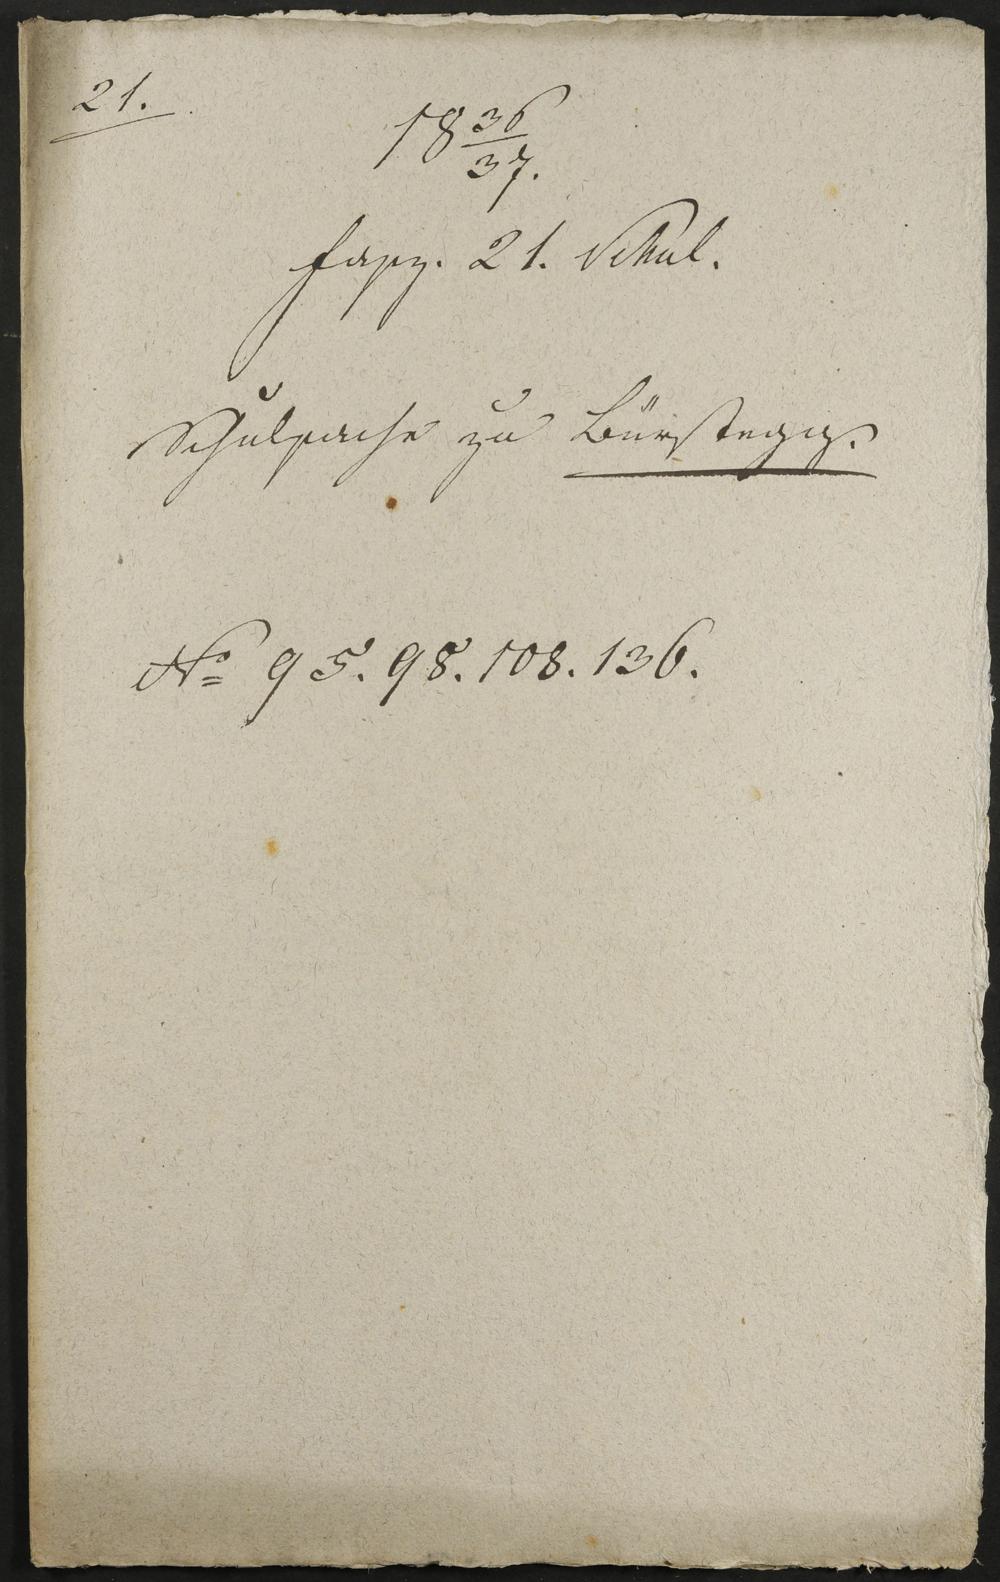 21.
18 36/37.
Fasz. 21. Schul.
Schulsache zu Bürstegg.
No 95. 98. 108. 136.